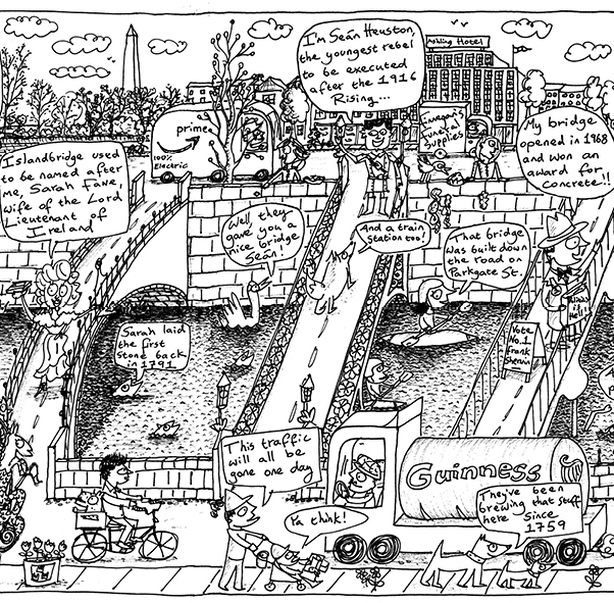 I'm Seán Heuston,
the youngest rebel
to be executed
after the 1916
Rising...
Ashling Hotel
prime
100%
Electric
Funeral
Supplies
My bridge
opened in 1968
and won an
award for
Concrete!!
Islandbridge used
to be named after
me, Sarah Fane,
wife of the Lord
Lieutenant of
Ireland
Well they
gave you a
nice bridge
Seán!
And a train
Station too!
That bridge
was built down
the road on
Parkgate St.
Sarah laid
the first
stone back
in 1791
Vote
No. 1
Frank
Sherwin
This traffic
will all be
gone one day
Ya think!
Guinness
They've been
brewing that stuff
here since
1759